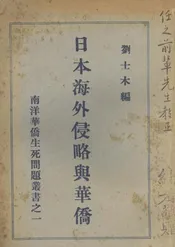 任之前輩先生
劉士木編
日本海外侵略與華僑
南洋華僑生死問題叢書之一